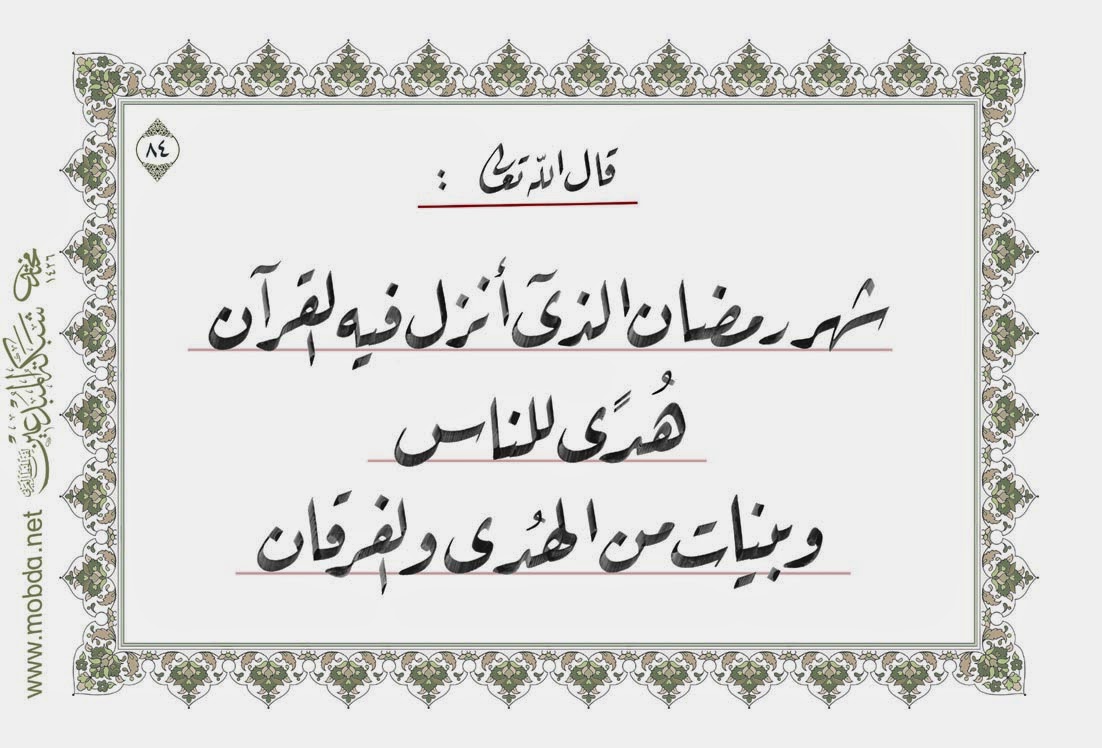 ٨٤
قال الله تعالى :
شهر رمضان الذي أنزل فيه القرآن
هُدًى للناس
وبينات من الهُدى والفرقان
شبكة المبدعين
١٤٢٦
www.mobda.net